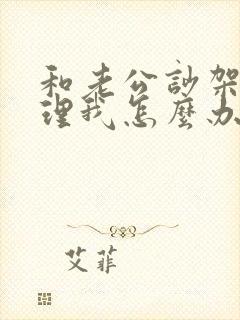 和老公訬架
理我怎麽办
艾菲